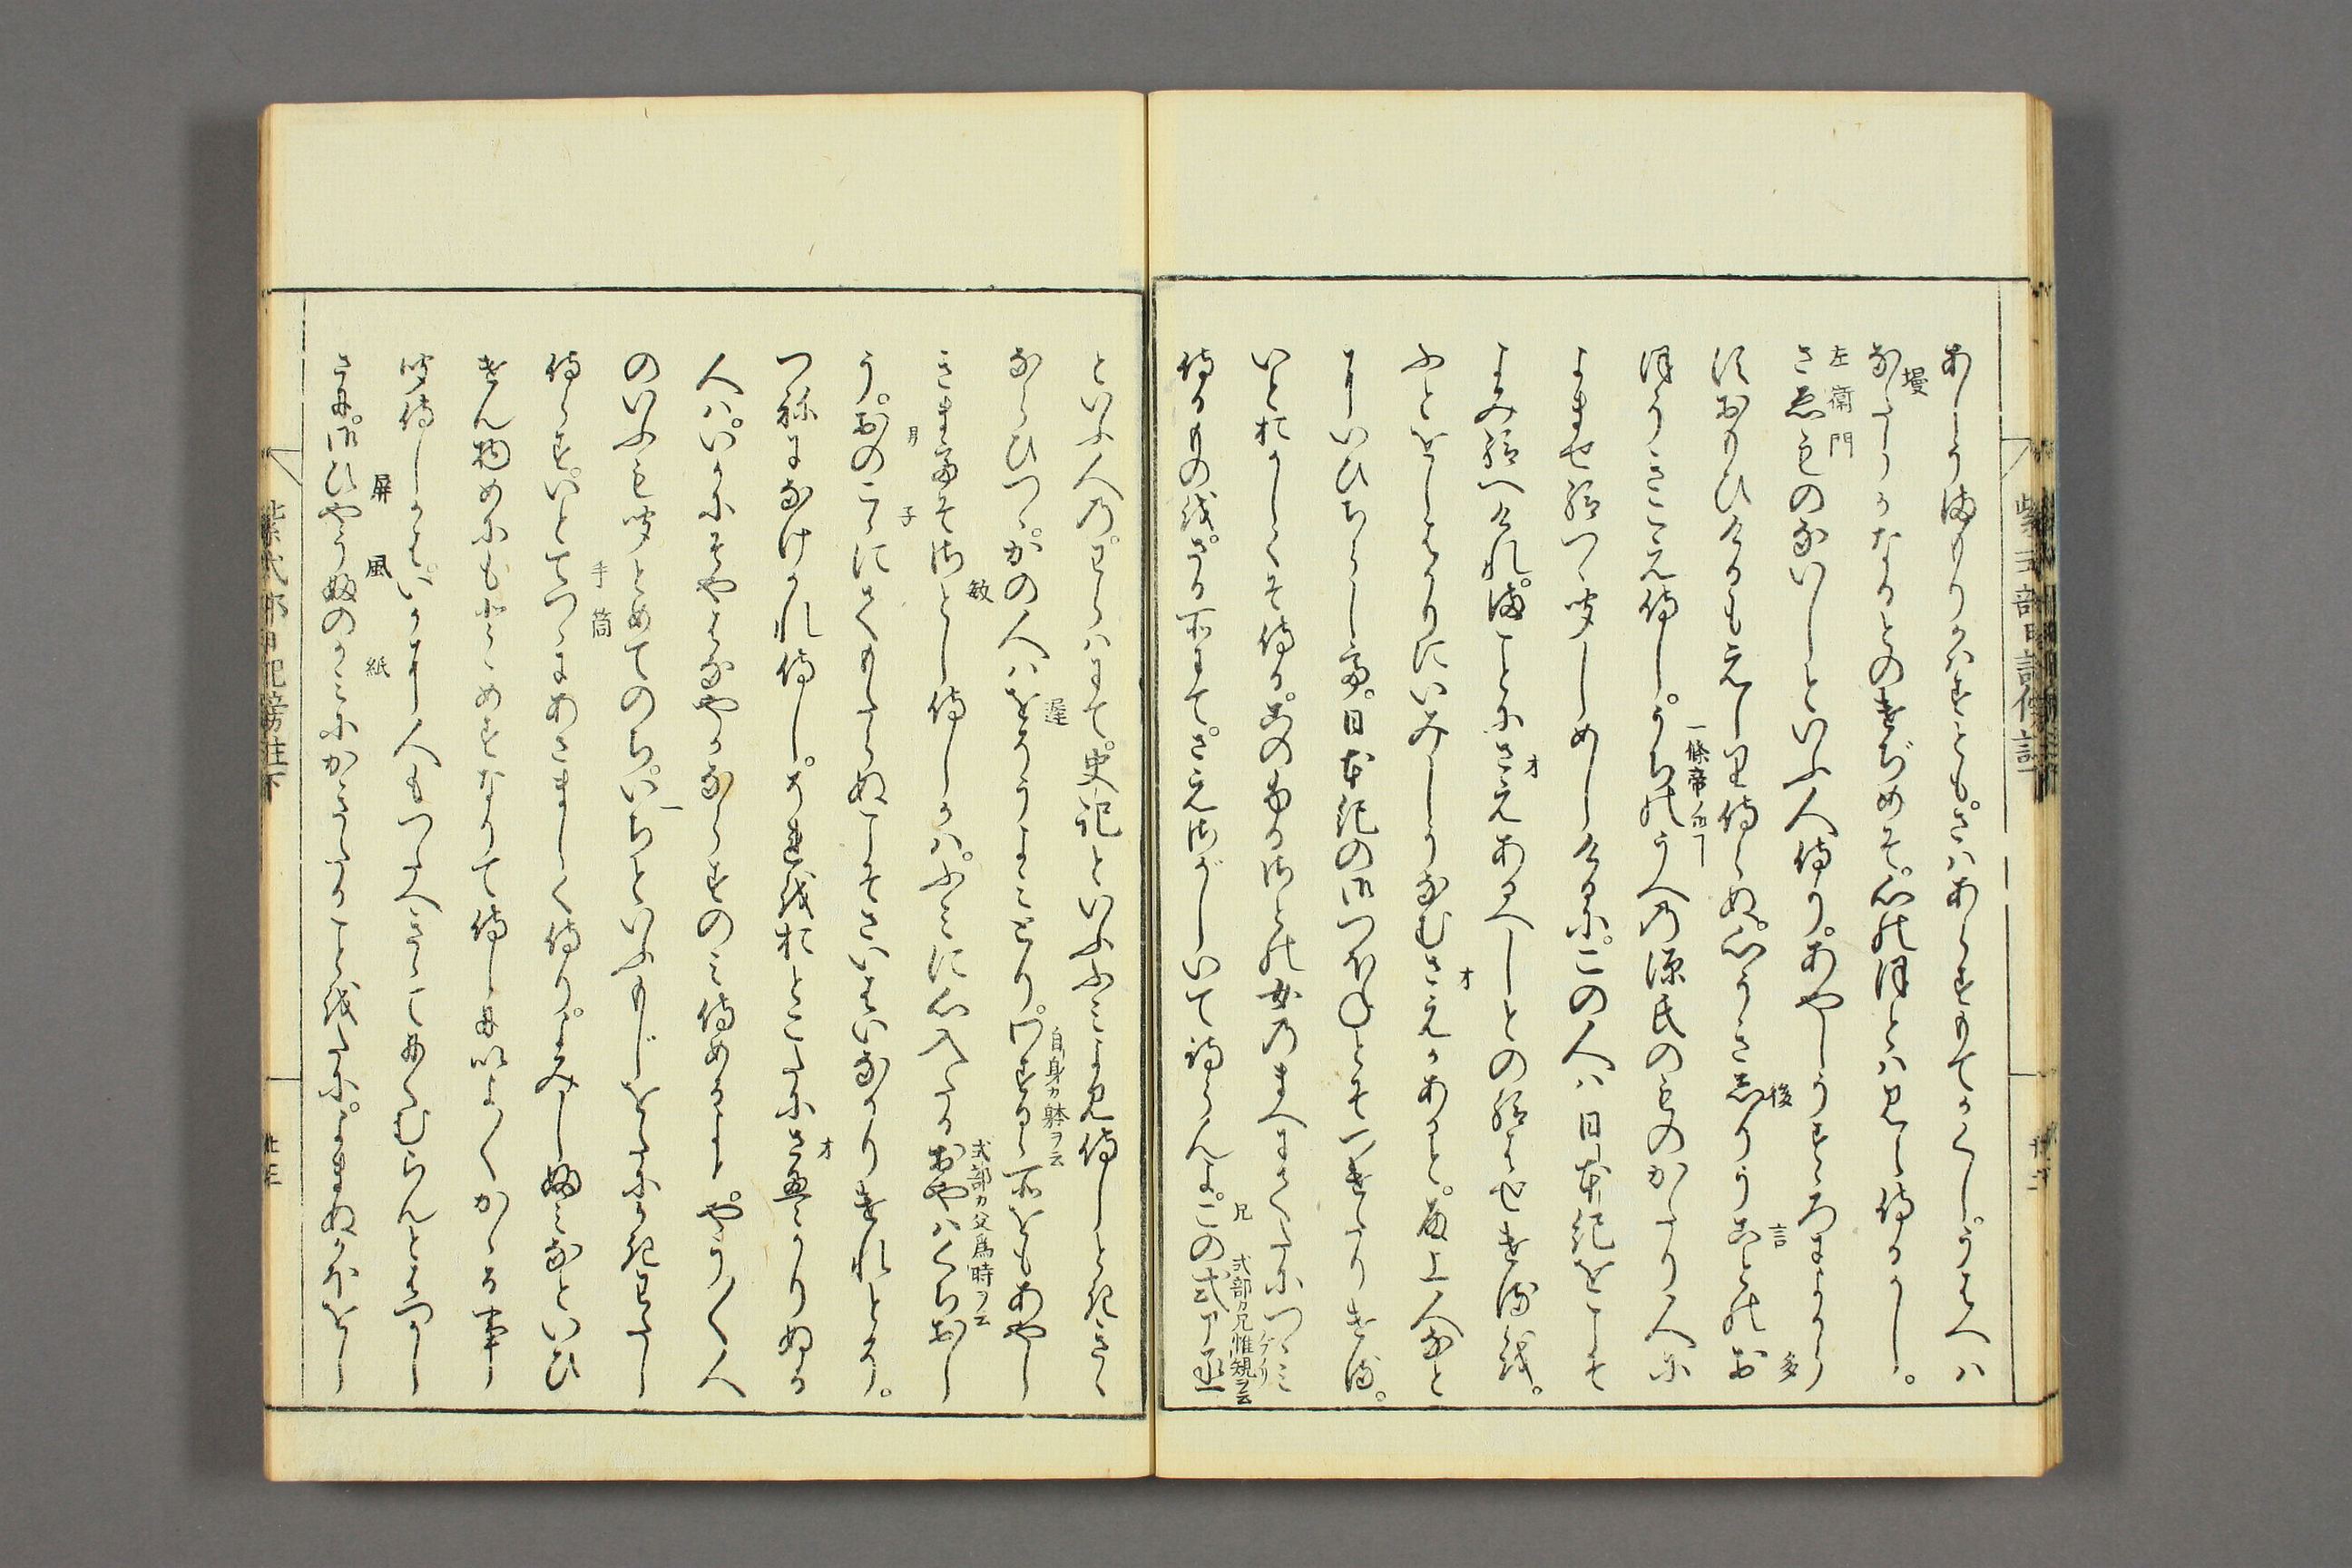 紫式部日記傍註下
あしうまもりかはすとも。さはあらすもてかくし。うはへは
なたらかなるとのけぢめそ。心のほとは見え侍るかし。
慢
さゑもんのないしといふ人侍り。あやしうすゝろによからす
左衛門
おもひけるもえしり侍らぬ。心うきしりうことのお
後
言
多
ほうきこえ侍し。うちのうへの源氏のものかたり人に
一條帝ノ御コト
よませ給つゝ聞しめしけるに。この人は日本紀をこそ
よみ給へけれ。まことにさえあるへしとの給はせけるを。
才
ふとをしはかりにいみしうなむさえかあると。殿上人なと
才
にいひちらして。日本紀の御つほねとそつけたりける。
いとおかしくそ侍る。このふる
さとの女のまへにてたにつゝみ
侍るものを。さる所にて。さえさかしいて侍らんよ。この式部丞
兄
式部カ兄惟規ヲ云
といふ人の。わらはにて。史記といふふみよみ侍しときき
ならひつゝ。かの人はをそうよみとり。わするゝ所をもあやし
遅
自身カ躰ヲ云
きまてそさとく侍しかは。ふみに心入たるおやはくちおし
敏
式部カ父為時ヲ云
う。おのこゝにてもたらぬこそさいはいなかりけれとそ。
男
子
つねになけかれ侍し。それをおとこたにさえかりぬる
才
人は。いかにそやはなやかならすのみ侍めるよと。やう〳〵人
のいふも聞とめてのち。いちといふもじをたにかきわたし
一
侍らす。いとてつゝにあさましく侍り。よみしふみなといひ
手筒
けん物めにもとゝめすなりて侍しに。いよ〳〵かゝる事
聞侍しかは。いかに人もつたへきゝてにくむらんとはつかし
さに。御ひやうふのかみにかきたることをたに。よまぬかほをし
屏
風
紙
紫式部日記傍註下